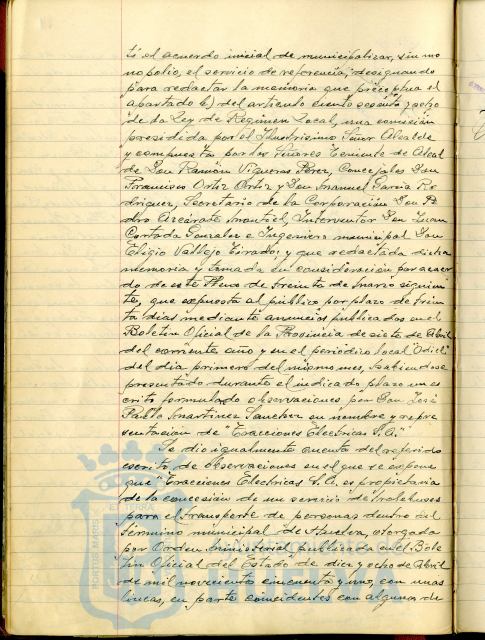 tó el acuerdo inicial de municipalizar, sin mo
nopolio, el servicio de referencia, designando
para redactar la memoria que preceptua el
apartado b) del artículo ciento sesenta y ocho
de la Ley de Régimen Local, una comisión
presidida por el Ilustrísimo Señor Alcalde
y compuesta por los Señores Teniente de Alcal
de Don Ramón Vigueras Pérez, Concejales Don
Francisco Ortiz Ortiz y Don Manuel García Ro
driguez, Secretario de la Corporación Don Pe
dro Azcárate Montiel, Interventor Don Juan
Cortada Gonzalez e Ingeniero municipal Don
Eligio Vallejo Tirado; y que redactada dicha
memoria y tomada en consideración por acuer
do de este Pleno de treinta de Marzo siguien
te, fue expuesta al público por plazo de trein
ta días mediante anuncios publicados en el
Boletín Oficial de la Provincia de siete de Abril
del corriente año y en el periódico local "Odiel"
del día primero del mismo mes, habiéndose
presentado durante el indicado plazo un es
crito formulado observaciones por Don José
Pablo Martinez Sanchez en nombre y repre
sentación de "Tracciones Electricas S.A."
Se dio igualmente cuenta del referido
escrito de observaciones en el que se expone
que "Tracciones Electricas S.A. es propietaria
de la concesión de un servicio de trolebuses
para el transporte de personas dentro del
término municipal de Huelva, otorgada
por Orden Ministerial publicada en el Bole
tín Oficial del Estado" de diez y ocho de Abril
de mil novecientos cincuenta y uno, con unas
líneas, en parte coincidentes con algunas de
PORTUS MARIS
ET TERRÆ